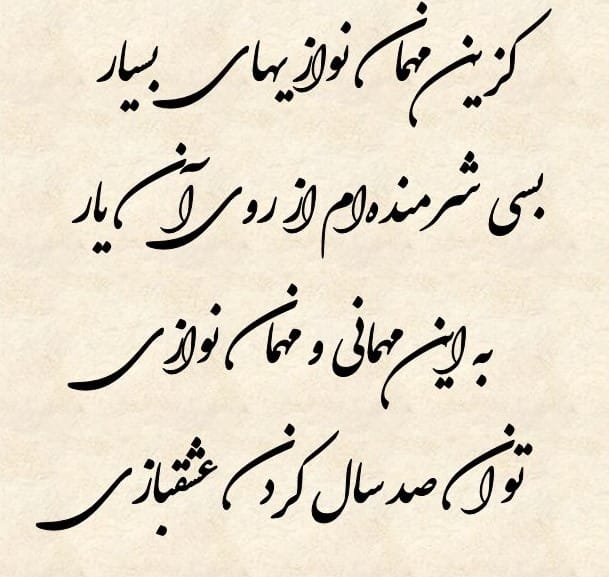 کزین مهمان نوازیهای بسیار
بسی شرمنده‌ام از روی آن یار
به این مهمانی و مهمان نوازی
توان صد سال کردن عشقبازی